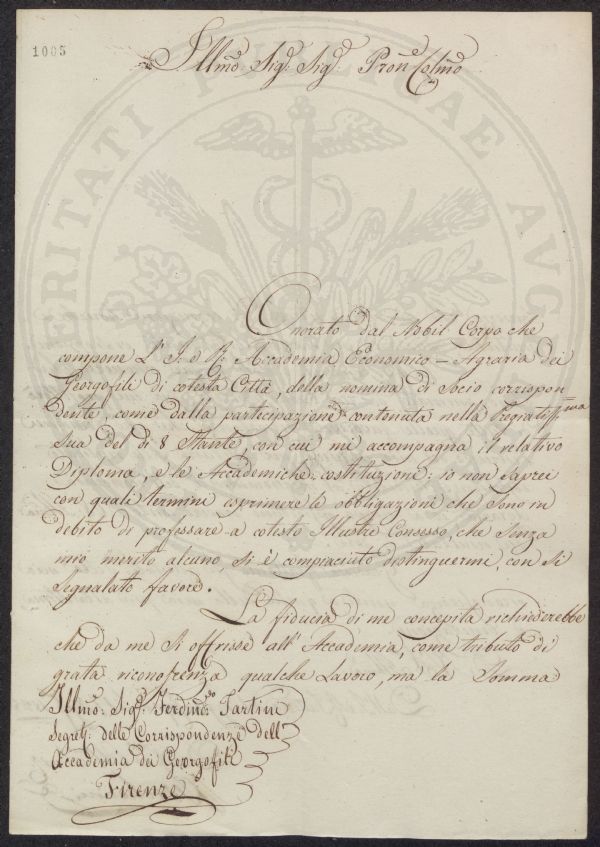 1005
Illmo: Sig: Sig: Pron Colmo
VERITATI PUBLICAE AUG
Onorato dal Nobil Corpo che
compone L' I. e R. Accademia Economico - Agraria dei
Georgofili di cotesta Città, della nomina di Socio corrispon
dente, come dalla partecipazione contenuta nella Pregiatissma
Sua del di 8 Stante, con cui mi accompagna il relativo
Diploma, e le Accademiche costituzioni; io non saprei
con quali termini esprimere le obbligazioni che sono in
debito di professare a cotesto Illustre Consesso, che senza
mio merito alcuno, si è compiaciuto distinguermi con si
segnalato favore.
La fiducia di me concepita richiederebbe
che da me si offrisse all' Accademia, come tributo di
grata riconoscenza qualche Lavoro, ma la Somma
Illmo: Sig: Ferdindo: Tartini
Segret: delle Corrispondenze dell'
Accademia dei Georgofili
Firenze